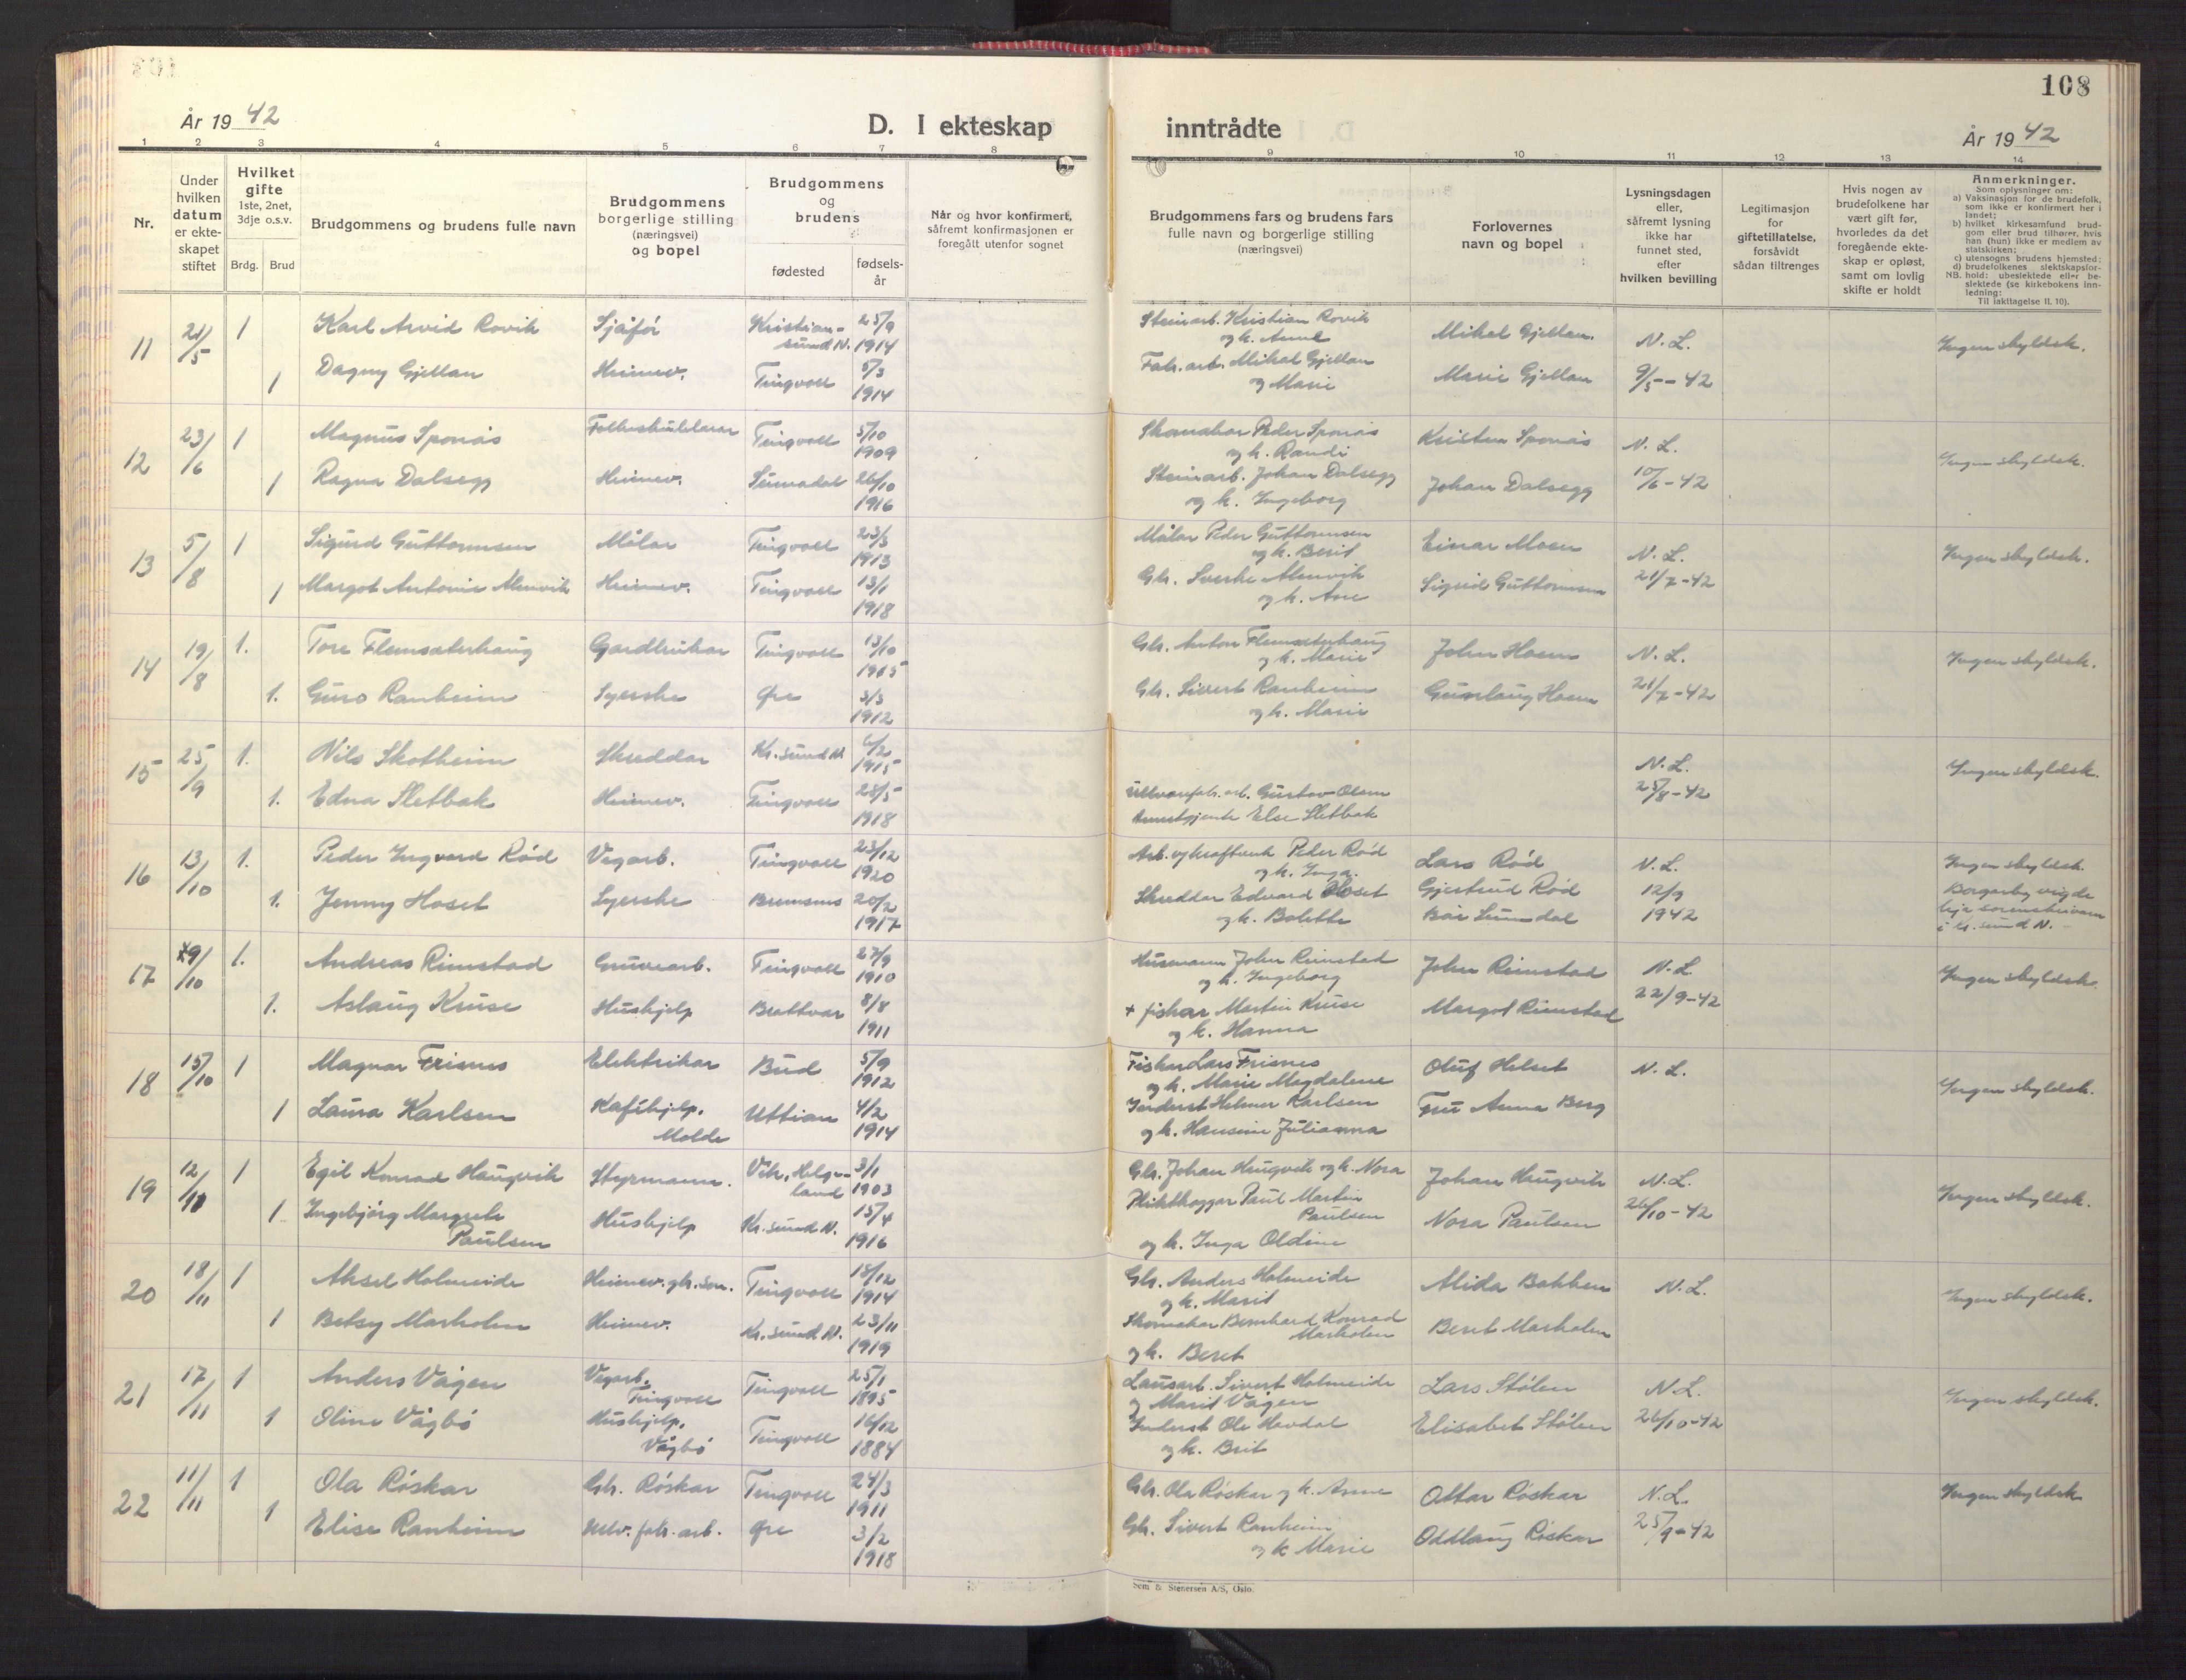 108
År 19 42
D. I ekteskap inntrådte
År 19 42
1 2 3 4 5 6 7 8 9 10 11 12 13 14
Nr.
Under
hvilken
datum
er ekte-
skapet
stiftet
Hvilket
gifte
1ste, 2net,
3dje o.s.v.
Brdg. Brud
Brudgommens og brudens fulle navn
Brudgommens
borgerlige stilling
(næringsvei)
og bopel
Brudgommens
og
brudens
fødested
fødsels-
år
Når og hvor konfirmert,
såfremt konfirmasjonen er
foregått utenfor sognet
Brudgommens fars og brudens fars
fulle navn og borgerlige stilling
(næringsvei)
Forlovernes
navn og bopel
Lysningsdagen
eller,
såfremt lysning
ikke har
funnet sted,
efter
hvilken bevilling
Legitimasjon
for
giftetillatelse,
forsåvidt
sådan tiltrenges
Hvis nogen av
brudefolkene har
vært gift før,
hvorledes da det
foregående ekte-
skap er opløst,
samt om lovlig
skifte er holdt
Anmerkninger.
Som oplysninger om:
a) Vaksinasjon for de brudefolk,
som ikke er konfirmert her i
landet;
b) hvilket kirkesamfund brud-
gom eller brud tilhører, hvis
han (hun) ikke er medlem av
statskirken;
c) utensogns brudens hjemsted;
d) brudefolkenes slektskapsfor-
NB. hold: ubeslektede eller be-
slektede (se kirkebokens inn-
ledning:
Til iakttagelse II. 10).
11 21/5 1 Karl Arvid Rovik Sjåfør Kristian-sund N. 25/9 1914 Steinarb. Kristian Rovik og k. Anne Mikal Gjellan. N. L. Ingen skyldsk.
1 Dagny Gjellan Heimev. Tingvoll 5/3 1914 Fabr. arb. Mikal Gjellan og Marie Marie Gjellan 9/5-42
12 23/6 1 Magnus Sponås Folkeskulelærar Tingvoll 5/10 1909 Skomakar Peder Sponås og k. Randi Kristen Sponås N. L. Ingen skyldsk.
1 Ragna Dalsegg Heimev. Surnadal 26/10 1916 Steinarb. Johan Dalsegg og k. Ingeborg Johan Dalsegg 10/6-42
13 5/8 1 Sigurd Guttormsen Målar Tingvoll 23/3 1913 Målar Peder Guttormsen og k. Berit Einar Moen N. L. Ingen skyldsk.
1 Margot Antonie Almvik Heimev. Tingvoll 13/1 1918 Gbr. Sverke Almvik og k. Ane Sigrid Guttormsen 21/7-42
14 19/8 1. Tore Flemsæterhaug Gardbrukar Tingvoll 13/10 1905 Gbr. Anton Flemsæterhaug og k. Marie John Hoem N. L. Ingen skyldsk.
1. Guro Ranheim Syerske Øre 3/3 1912 Gbr. Sivert Ranheim og k. Marie Gunnlaug Hoem 21/7-42
15 25/9 1. Nils Skotheim Skreddar Kr. sund N. 6/2 1915 N. L. Ingen skyldsk.
1. Edna Sletbak Heimev. Tingvoll 28/5 1918 Ullvarefabr. arb. Gustav Olsen Else Sletbak 25/8-42
16 13/10 1. Peder Ingvard Rød Vegarb. Tingvoll 23/12 1920 Arb. v/kraftverk Peder Rød og k. Inga. Lars Rød N. L. Ingen skyldsk.
1. Jenny Hoset Syerske Bremsnes 20/2 1917 Skreddar Edvard Hoset og k. Bolette Gjertrud Rød 12/9 1942 Borgarleg vigde
i Kr. sund N.
17 9/10 1. Andreas Rimstad Gruvearb. Tingvoll 27/9 1910 Husmann John Rimstad og k. Ingeborg John Rimstad N. L. Ingen skyldsk.
1. Aslaug Kruse Hushjelp Brattvær 8/8 1911 + fiskar Martin Kruse og k. Hanna Margot Rimstad 22/9-42
18 15/10 1 Magnar Frisnes Elektrikar Bud 5/9 1912 Fiskar Lars Frisnes og k. Marie Magdalene Oluf Helset N. L. Ingen skyldsk.
1 Laura Karlsen Kaféhjelp. Molde Uttian 4/2 1914 Inderst Helmer Karlsen og k. Hansine Julianna Fru Anna Berg
19 12/11 1 Egil Konrad Haugvik Styrmann. Vik, Helge-land 3/1 1903 Gbr. Johan Haugvik og k. Nora Johan Haugvik N. L. Ingen skyldsk.
1 Ingebjörg Margrete Paulsen Hushjelp Kr. sund N. 15/4 1916 Paul Martin Paulsen og k. Inga Oldine Nora Paulsen 26/10-42
20 18/11 1 Aksel Holmeide Heimev. gbr. son. Tingvoll 15/12 1914 Gbr. Anders Holmeide og k. Marit Alida Bakken N. L. Ingen skyldsk.
1 Betsy Marholm Heimev. Kr. sund N. 23/11 1919 Skomakar Bernhard Konrad Marholm og k. Beret Beret Marholm
21 17/11 1 Anders Vågen Vegarb. Tingvoll Tingvoll 25/1 1895 Lausarb. Sivert Holmeide og Marit Vågen Lars Stølen N. L. Ingen skyldsk.
1 Oline Vågbø Hushjelp. Vågbø Tingvoll 16/12 1884 Inderst Ole Hovdal og k. Brit Elisabet Stølen 26/10-42
22 11/11 1 Ola Röskar Gbr. Röskar Tingvoll 24/3 1911 Gbr. Ola Röskar og k. Anne Ottar Röskar N. L. Ingen skyldsk.
1 Elise Ranheim Ullv. fabr. arb. Øre 3/2 1918 Gbr. Sivert Ranheim og k. Marie Oddlaug Röskar 25/9-42
Sem & Stenersen A/S, Oslo.